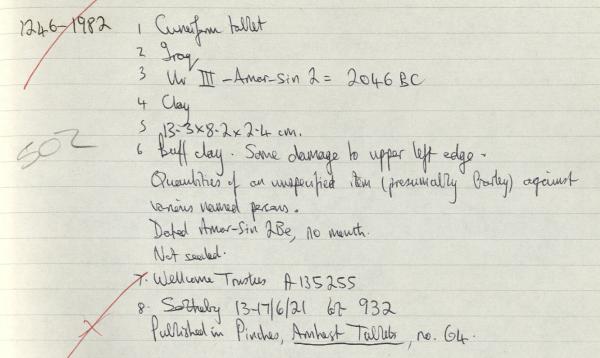 1246-1982
1 Cuneiform tablet
2 Iraq
3 Ur III - Amar-Sin 2 = 2046 BC
4 Clay
5 13.3 x 8.2 x 2.4 cm.
502
6 Buff clay. Some damage to upper left edge.
Quantities of an unspecified item (presumably barley) against
various named persons.
Dated Amar-Sin 2Be, no month.
Not sealed.
7. Wellcome Trustees A135255
8. Sotheby 13-17/6/21 lot 932
Published in Pinches, Amherst Tablets, no. 64.